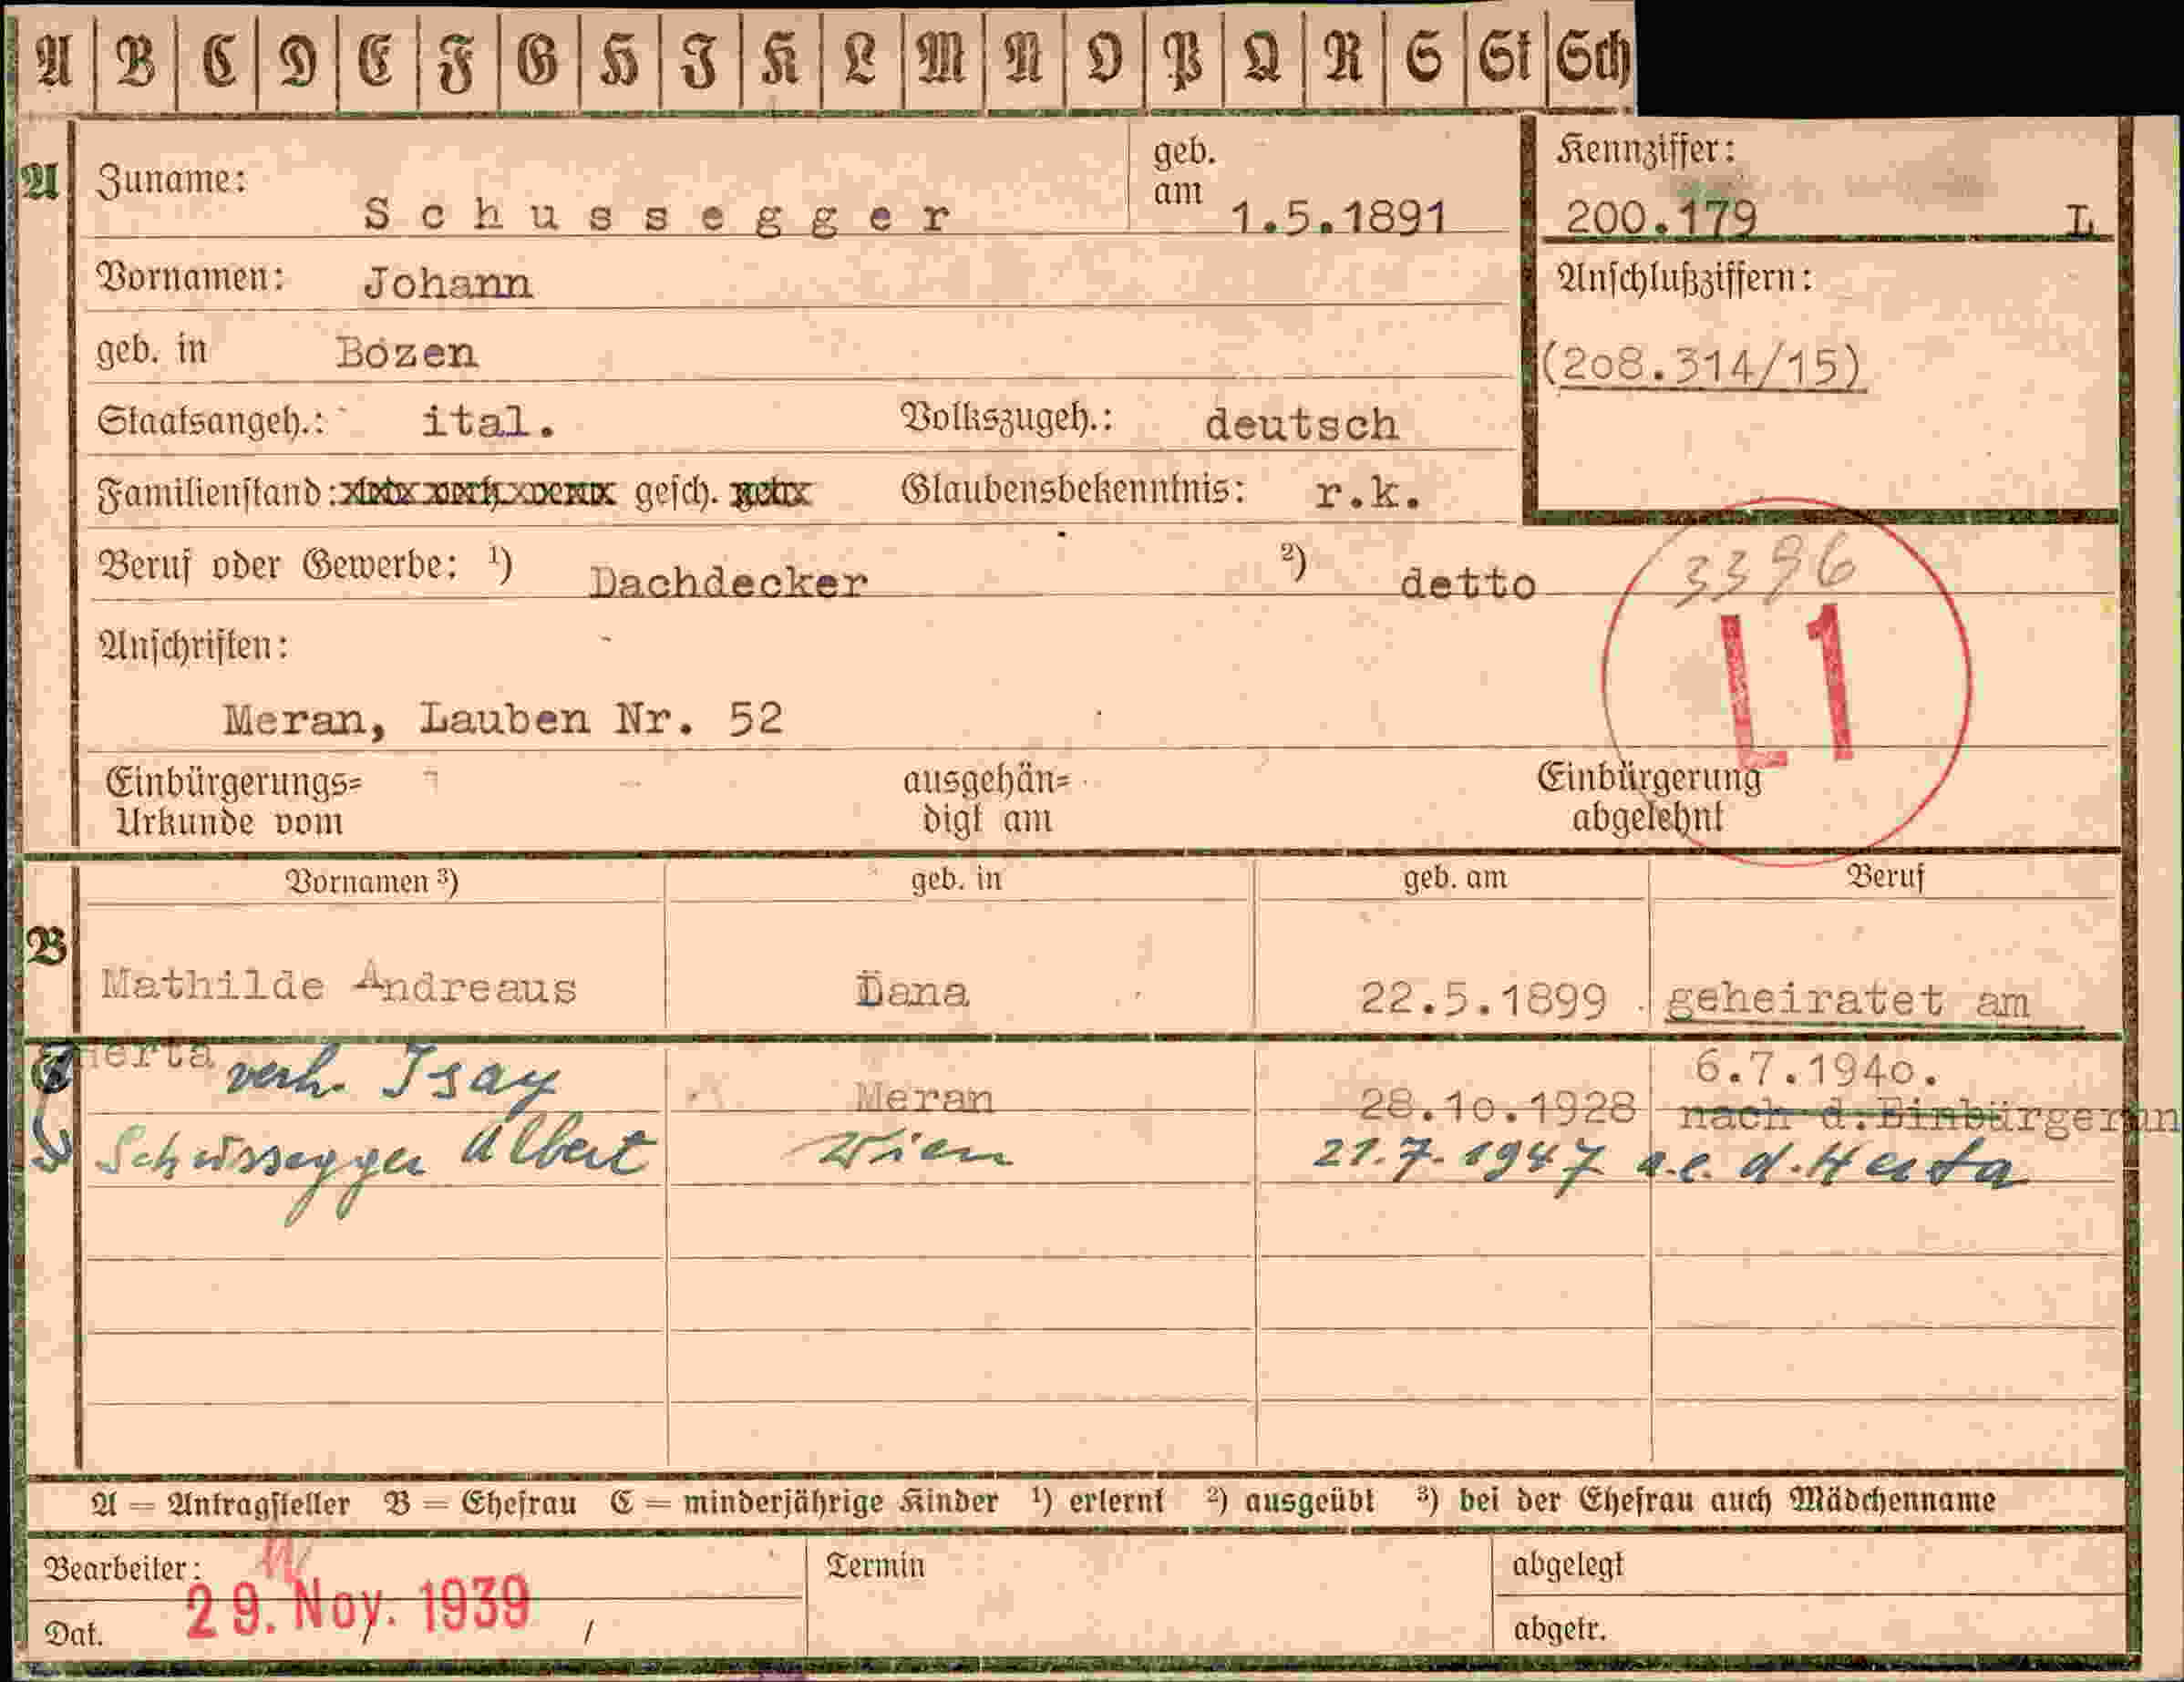 A B C D E F G H I K L M N O P Q R S St Sch
A
Zuname: Schussegger
geb. am 1.5.1891
Kennziffer:
200.179 L
Vornamen: Johann
Anschlußziffern:
(208.314/15)
geb. in Bozen
Staatsangeh.: ital. Volkszugeh.: deutsch
Familienstand: gesch. Glaubensbekenntnis: r.k.
Beruf oder Gewerbe: ¹) Dachdecker ²) detto
3396
L1
Anschriften:
Meran, Lauben Nr. 52
Einbürgerungs= ausgehän= Einbürgerung
Urkunde vom digt am abgelehnt
Vornamen ³) geb. in geb. am Beruf
B
Mathilde Andreaus Dana 22.5.1899 geheiratet am
6.7.1940.
C Herta verh. Isay Meran 28.10.1928 nach d.Einbürgerun
Schussegger Albert Wien 21.7.1947 a.e. d. Herta
A = Antragsteller B = Ehefrau C = minderjährige Kinder ¹) erlernt ²) ausgeübt ³) bei der Ehefrau auch Mädchenname
Bearbeiter: Termin abgelegt
Dat. 29. Nov. 1939 / abgetr.